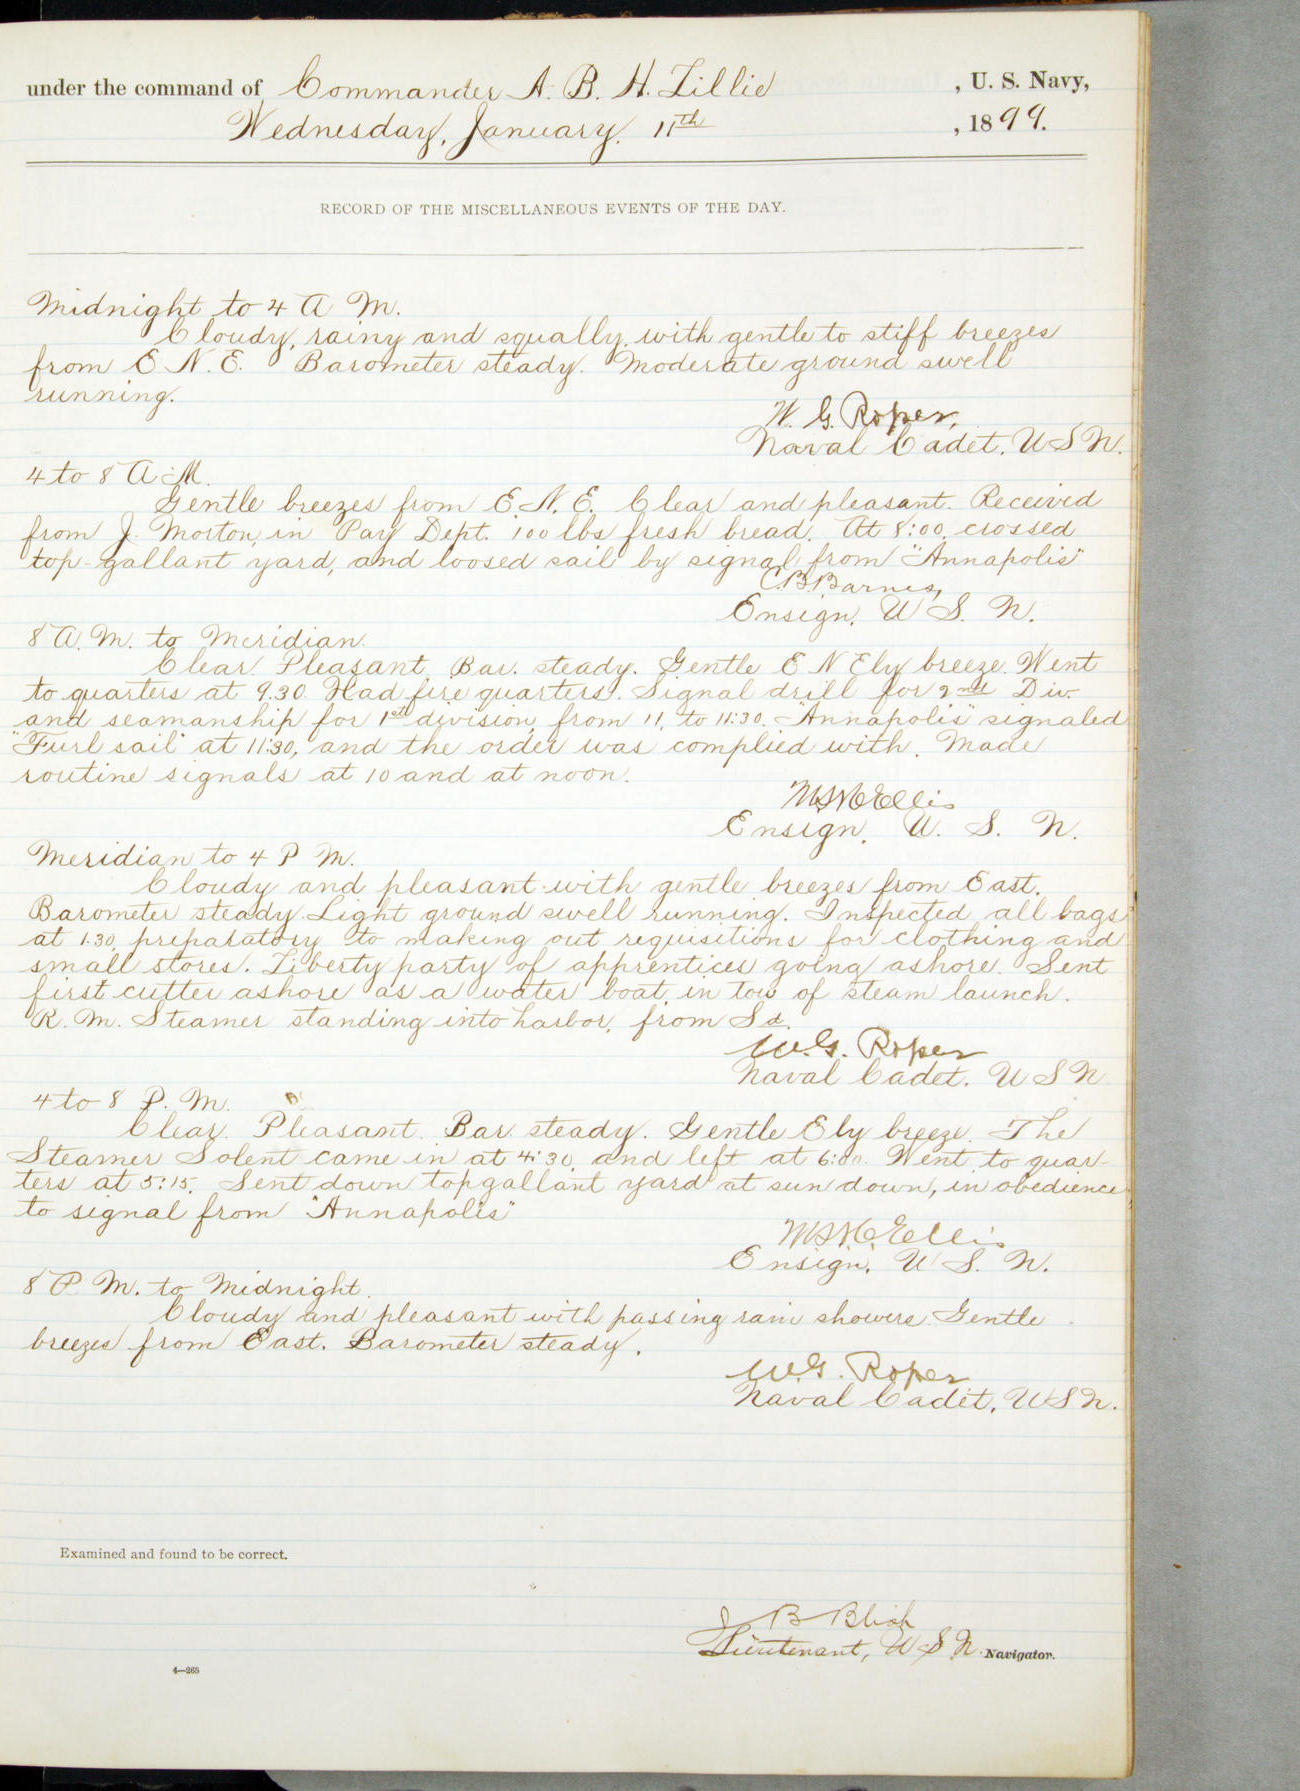 under the command of Commander A. B. H. Lillie , U. S. Navy,
Wednesday, January 11th , 1899.
RECORD OF THE MISCELLANEOUS EVENTS OF THE DAY.
Midnight to 4 A M.
Cloudy, rainy and squally, with gentle to stiff breezes
from E. N. E. Barometer steady. Moderate ground swell
running.
W. G. Roper,
Naval Cadet, U S N.
4 to 8 A M.
Gentle breezes from E. N. E. Clear and pleasant. Received
from J. Morton, in Pay Dept. 100 lbs fresh bread. At 8:00, crossed
top-gallant yard, and loosed sail by signal from "Annapolis"
C. B. Barnes,
Ensign, U. S. N.
8 A. M. to Meridian.
Clear. Pleasant. Bar. steady. Gentle E N Ely breeze. Went
to quarters at 9.30. Had fire quarters. Signal drill for 2nd Div.
and seamanship for 1st division, from 11, to 11:30. "Annapolis" signaled
"Furl sail" at 11:30, and the order was complied with. Made
routine signals at 10 and at noon.
Ellis
Ensign, U. S. N.
Meridian to 4 P M.
Cloudy and pleasant with gentle breezes from East.
Barometer steady. Light ground swell running. Inspected all bags
at 1.30, preparatory to making out requisitions for clothing and
small stores. Liberty party of apprentices going ashore. Sent
first cutter ashore as a water boat, in tow of steam launch.
R. M. Steamer standing into harbor, from Sd.
W. G. Roper
Naval Cadet, U S N
4 to 8 P. M.
Clear. Pleasant. Bar. steady. Gentle Ely breeze. The
Steamer Solent came in at 4:30, and left at 6:00. Went to quar-
ters at 5:15. Sent down topgallant yard at sun down, in obedience
to signal from "Annapolis"
Ellis
Ensign, U. S. N.
8 P. M. to Midnight.
Cloudy and pleasant with passing rain showers. Gentle
breezes from East. Barometer steady.
W. G. Roper
Naval Cadet, U S N.
Examined and found to be correct.
J B Blish
Lieutenant, U S N. Navigator.
4—265